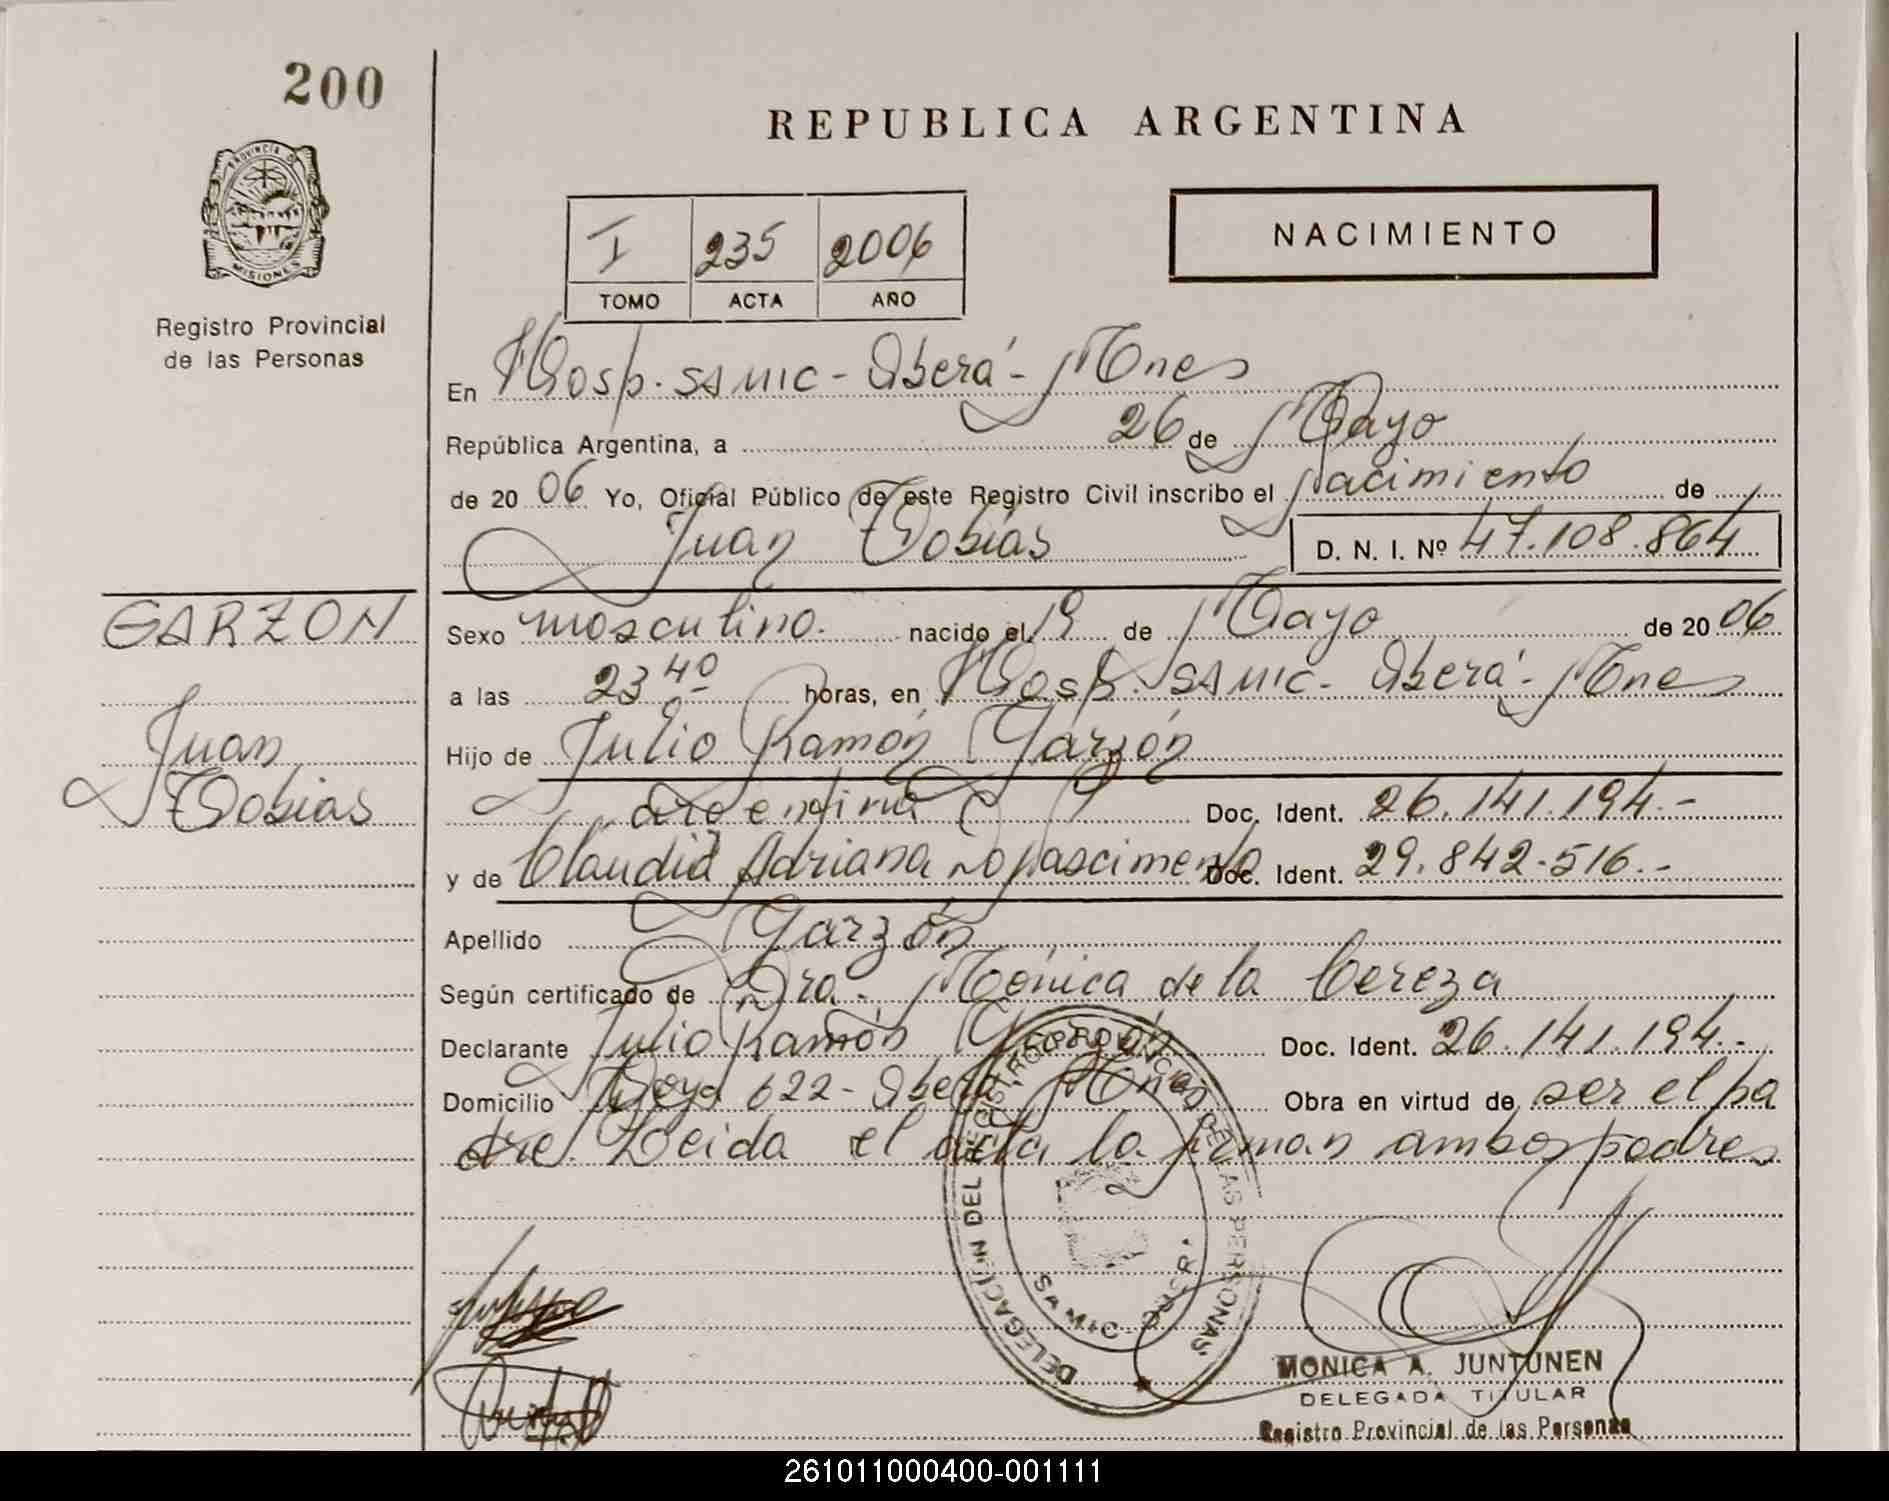 200
REPUBLICA ARGENTINA
PROVINCIA DE
MISIONES
Registro Provincial
de las Personas
I 235 2006
TOMO ACTA AÑO
NACIMIENTO
En Hosp. SAMIC - Oberá - Mnes
República Argentina, a 26 de Mayo
de 20 06 Yo, Oficial Público de este Registro Civil inscribo el nacimiento de
Juan Tobías D. N. I. Nº 47.108.864
GARZON
Juan
Tobias
Sexo masculino. nacido el 19 de Mayo de 20 06
a las 23 40 horas, en Hosp. SAMIC - Oberá - Mnes
Hijo de Julio Ramón Garzón
argentino Doc. Ident. 26.141.194.-
y de Claudia Adriana Do Nascimento Doc. Ident. 29.842.516.-
Apellido Garzón
Según certificado de Dra. Mónica de la Cereza
Declarante Julio Ramón Garzón Doc. Ident. 26.141.194.-
Domicilio 622 - Oberá, Mnes Obra en virtud de ser el pa
dre. Leida el acta la firman ambos padres
DELEGACION DEL REGISTRO PROVINCIAL DE LAS PERSONAS
SAMIC
MONICA A. JUNTUNEN
DELEGADA TITULAR
Registro Provincial de las Personas
261011000400-001111